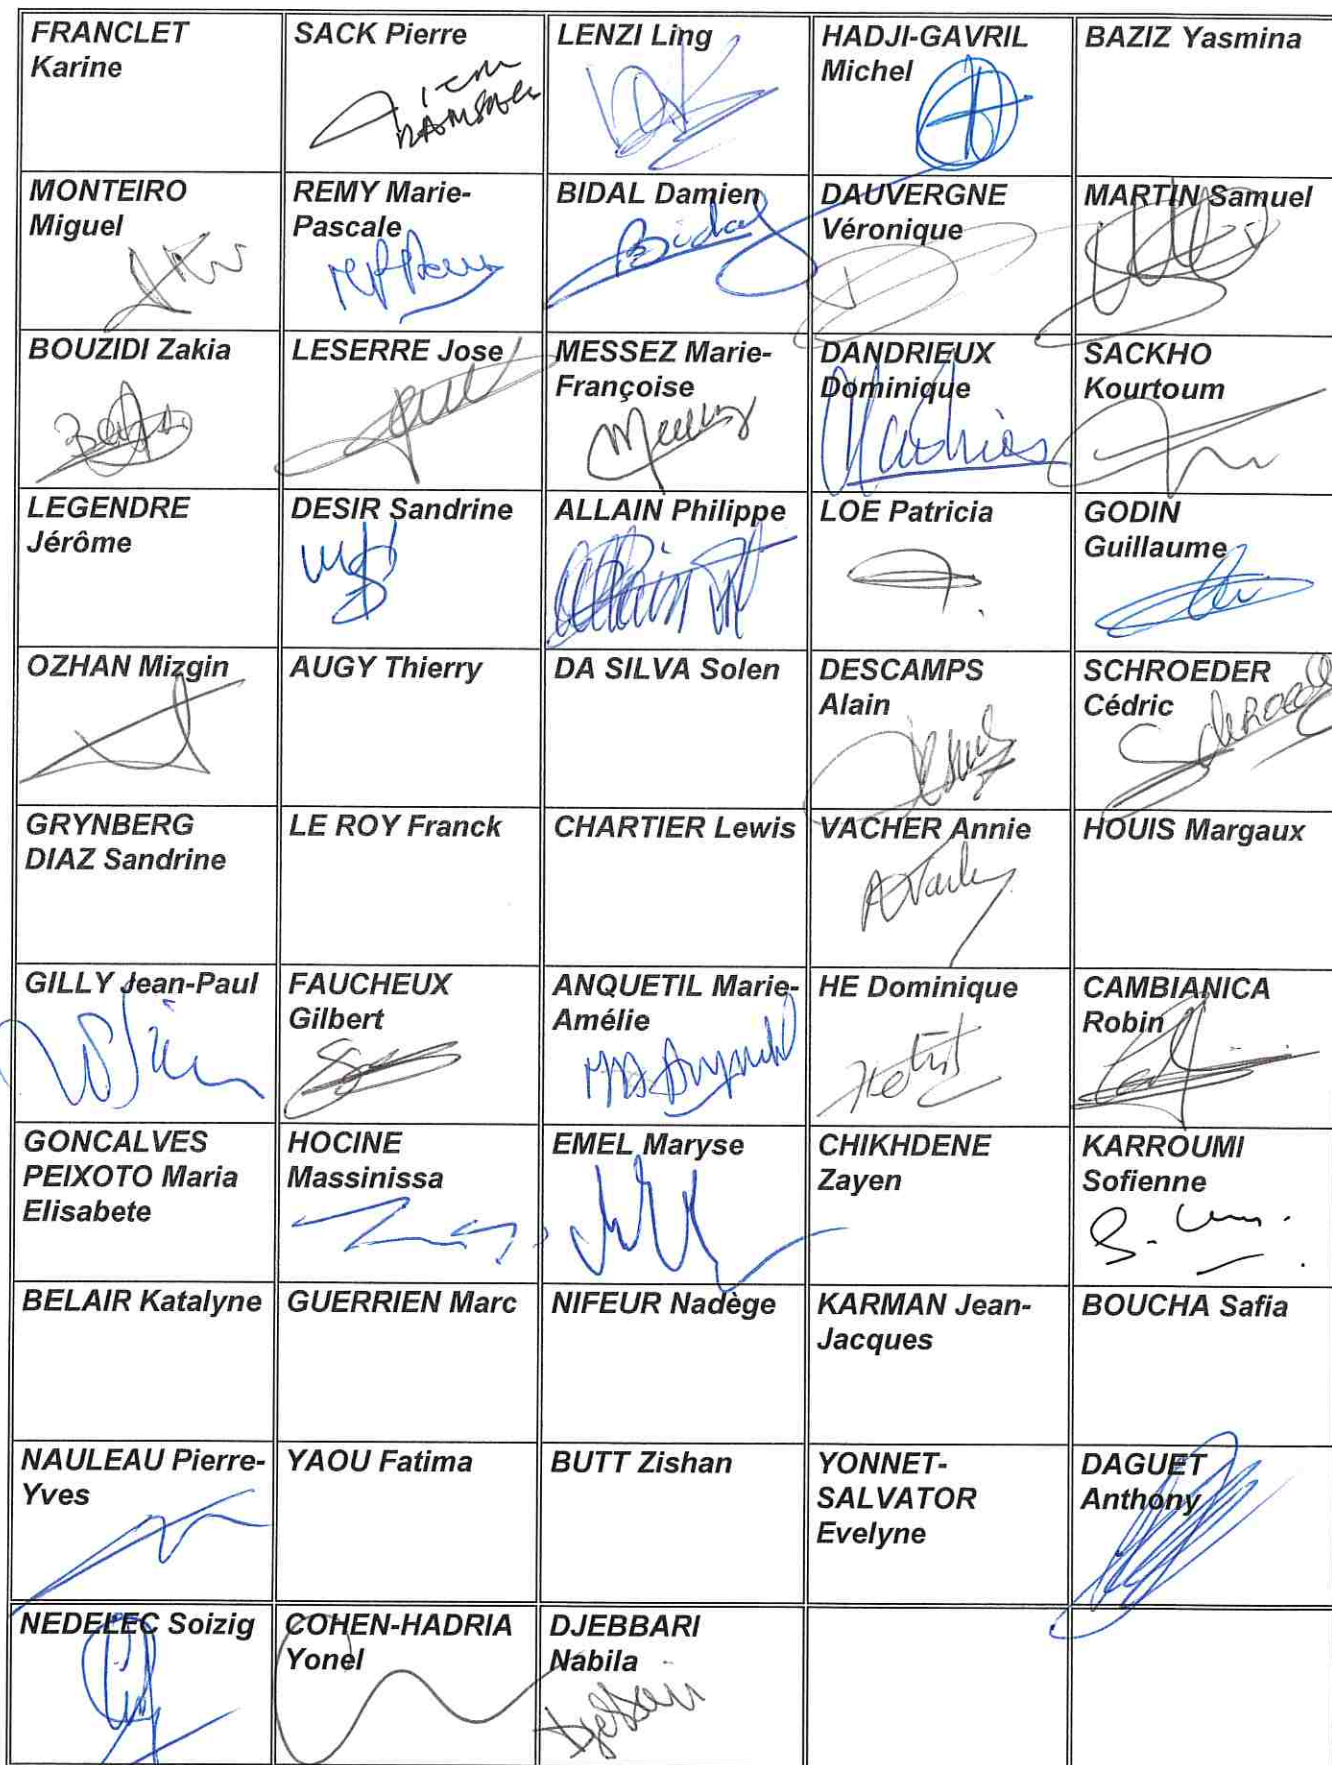 FRANCLET
Karine
SACK Pierre
LENZI Ling
HADJI-GAVRIL
Michel
BAZIZ Yasmina
MONTEIRO
Miguel
REMY Marie-
Pascale
BIDAL Damien
Bidal
DAUVERGNE
Véronique
MARTIN Samuel
BOUZIDI Zakia
LESERRE Jose
MESSEZ Marie-
Françoise
DANDRIEUX
Dominique
SACKHO
Kourtoum
LEGENDRE
Jérôme
DESIR Sandrine
ALLAIN Philippe
LOE Patricia
GODIN
Guillaume
OZHAN Mizgin
AUGY Thierry
DA SILVA Solen
DESCAMPS
Alain
SCHROEDER
Cédric
GRYNBERG
DIAZ Sandrine
LE ROY Franck
CHARTIER Lewis
VACHER Annie
HOUIS Margaux
GILLY Jean-Paul
FAUCHEUX
Gilbert
ANQUETIL Marie-
Amélie
HE Dominique
CAMBIANICA
Robin
GONCALVES
PEIXOTO Maria
Elisabete
HOCINE
Massinissa
EMEL Maryse
CHIKHDENE
Zayen
KARROUMI
Sofienne
BELAIR Katalyne
GUERRIEN Marc
NIFEUR Nadège
KARMAN Jean-
Jacques
BOUCHA Safia
NAULEAU Pierre-
Yves
YAOU Fatima
BUTT Zishan
YONNET-
SALVATOR
Evelyne
DAGUET
Anthony
NEDELEC Soizig
COHEN-HADRIA
Yonel
DJEBBARI
Nabila